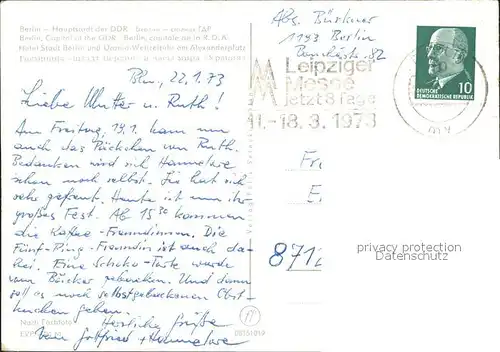 Berlin – Hauptstadt der DDR
Berlin, Capital of the GDR Berlin, capitale de la R.D.A.
Hotel Stadt Berlin und Urania-Weltzeituhr am Alexanderplatz
Abs. Bürkner
1193 Berlin
82
Leipziger
Messe
jetzt 8 Tage
11.-18.3.1973
10
DEUTSCHE
DEMOKRATISCHE REPUBLIK
Bln., 22.1.73
Liebe Mutter u. Ruth!
Am Freitag, 19.1. kam nun
auch das Päckchen von Ruth.
Bedanken wird sich Hannelore
schon noch selbst. Sie hat sich
sehr gefreut. Heute ist nun ihr
großes Fest. Ab 15³⁰ kommen
die Kaffee-Freundinnen. Die
Fünf-Ring-Freundin ist auch da-
bei. Eine Schoko-Torte wurde
vom Bäcker gebacken. Und dann
soll es noch selbstgebackenen Obst-
kuchen geben.
Herzliche Grüße
von Gottfried + Hannelore
Fr
E
871
privacy protection
for Customers